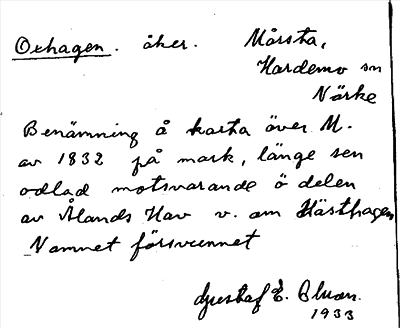 Oxhagen. åker. Mårsta,
Hardemo sn
Närke
Benämning å karta över M.
av 1832 på mark, länge sen
odlad motsvarande ö delen
av Ålands Hav v. om Hästhagen
Namnet försvunnet
Gustaf E.
1933